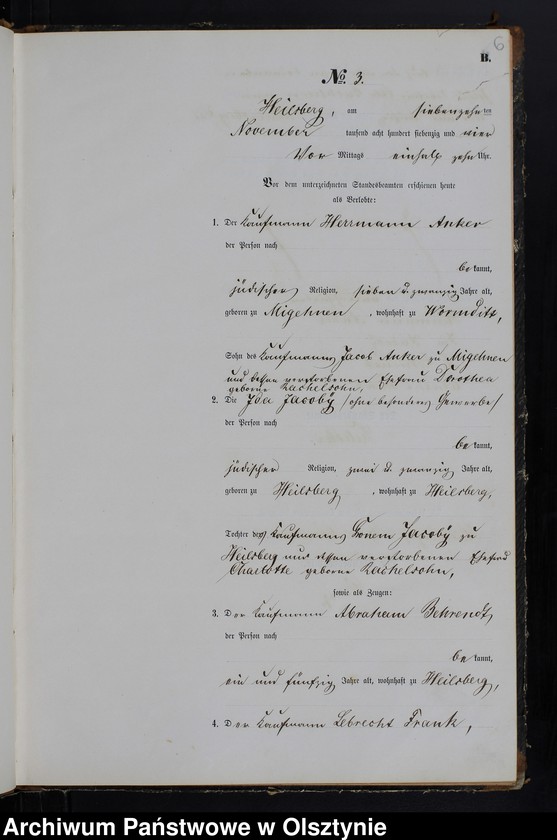 6
B.
No. 3.
Heilsberg, am siebenzehn ten
November tausend acht hundert siebenzig und vier
Vor Mittags einhalb zehn Uhr.
Vor dem unterzeichneten Standesbeamten erschienen heute
als Verlobte:
1. Der Kaufmann Herrmann Anker
der Person nach
be kannt,
jüdischer Religion, sieben u. zwanzig Jahre alt,
geboren zu Migehnen, wohnhaft zu Wormditt,
Sohn des Kaufmanns Jacob Anker zu Migehnen
und dessen verstorbenen Ehefrau Dorothea
geborne Rachelsohn,
2. Die Ida Jacoby /ohne besonderes Gewerbe/
der Person nach
be kannt,
jüdischer Religion, zwei u. zwanzig Jahre alt,
geboren zu Heilsberg, wohnhaft zu Heilsberg,
Tochter des Kaufmanns Jacoby zu
Heilsberg und dessen verstorbenen Ehefrau
Charlotte geborne Rachelsohn,
sowie als Zeugen:
3. Der Kaufmann Abraham Behrendt,
der Person nach
be kannt,
ein und fünfzig Jahre alt, wohnhaft zu Heilsberg,
4. Der Kaufmann Lebrecht Frank,
Archiwum Państwowe w Olsztynie